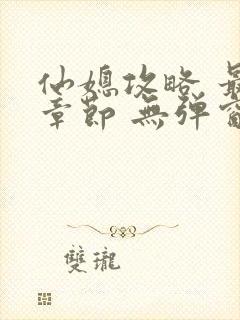 仙媳攻略 最
章節 無彈窗
雙瓏